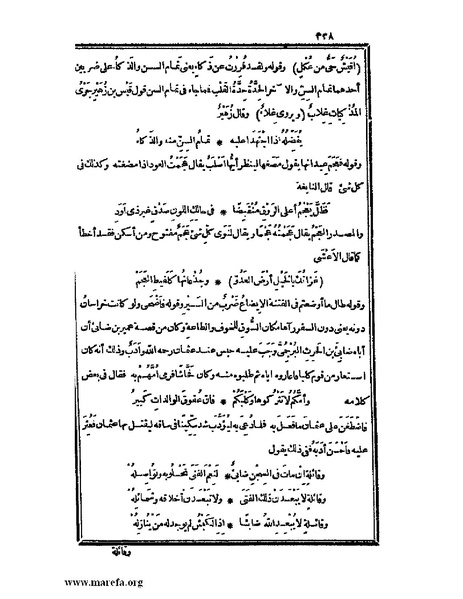 ٣٣٨
(أُقَيْشٌ حَىٌّ من عُكْلٍ) وقوله ولقد فُرِرْتُ عن ذَكاء يعنى تَمامَ السن والذكاءُ على ضربين
أحدهما تمامُ السِنِّ والآخر الحِدَّةُ حِدَّةُ القلب فما جاء فى تمام السن قول قيس بن زُهَيْرٍ جَرْىُ
المُذَكِّيات غِلابٌ (ويروى غِلاءٌ) وقال زُهَيْرٌ
يُفَضِّلُهُ اذا اجْتَهَدا عليه * تمامُ السِنِّ منه والذكاءُ
وقوله فعَجَم عِيدانَها يقول مَضَغَها لينظر أيُّها أصْلَبُ يقال عَجَمْتُ العودَ اذا مضغته وكذلك فى
كل شئ قال النابغة
فَظَلَّ يَعْجُمُ أعلى الرَوْقِ مُنْقَبِضًا * فى حالِكِ اللونِ صَدْقٍ غيرِ ذى أَوَدِ
والمصدر العَجْمُ يقال عَجَمْتُهُ عَجْمًا ويقال لنَوَى كلِّ شئ عَجَمٌ مفتوح ومن أسكن فقد أخطأ
كما قال الأَعْشَى
وقوله طال ما أوضعتم فى الفتنة الايضاعُ ضَرْبٌ من السَيْر وقوله فأضْحَى ولو كانت خراسان
دونه يعنى دون السفر رآها مكان السُوق للخوف والطاعة وكان من قصة عمير بن ضابئٍ أن
أباه ضابئَ بن الحرث البُرْجُمِىَّ وَجَبَ عليه حبس عند عثمان رحمه الله وأدَبٌ وذلك أنه كان
استعار من قوم كلبا فأعاروه اياه ثم طلبوه منه وكان فَحَّاشًا فرمى أُمَّهُمْ به فقال فى بعض
كلامه وأُمَّكُمُ لا تتركوها وكلبَكُمْ * فانّ عُقوقَ الوالدات كبيرُ
فاضْطَغَنَ على عثمان ما فعل به فلما دُعِىَ به ليُؤَدَّبَ شد سِكِّينًا فى ساقه ليقتل بها عثمان فعُثِرَ
عليه فأُحْسِنَ أدبُه ففى ذلك يقول
وقائلةٍ إنْ مات فى السِجْنِ ضابئٌ * لنِعْمَ الفَتَى نَخْلُو به ونُواصِلُهْ
وقائلةٍ لا يَبْعَدَنْ ذلك الفَتَى * ولا تَبْعَدَنْ أخلاقُه وشمائلُهْ
وقائلةٍ لا يُبْعِدِ اللهُ ضابئًا * اذا الكَبْشُ لم يوجد له من يُنازلُهْ
وقائلة
www.marefa.org